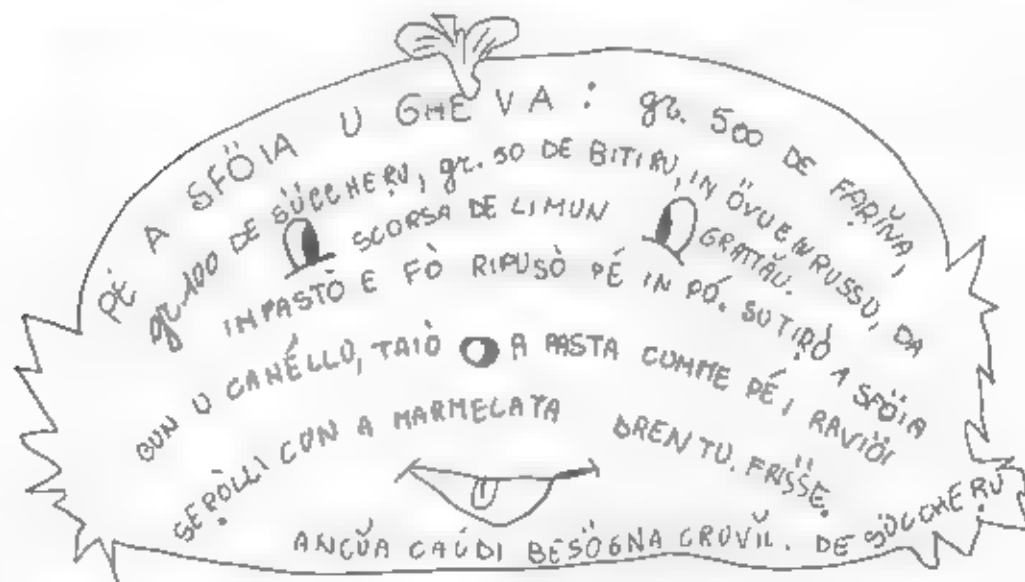 PÉ A SFÖIA U GHE VA : gr. 500 DE FARIŇA,
gr. 100 DE SÜCCHERU, gr. 50 DE BITIRU, IN ÖVU E IN RUSSU, DA
SCORSA DE LIMUN GRATTÄU.
IMPASTÒ E FÒ RIPUSÒ PÉ IN PÓ. SUTIRÒ A SFÖIA
CUN U CANÉLLU, TAIÒ A PASTA COMME PÉ I RAVIÖI
SERÒLLI CON A MARMELATA DRENTU. FRÏSSE.
ANCŬA CAÚDI BESÖGNA CRUVÎL. DE SÜCCHERU